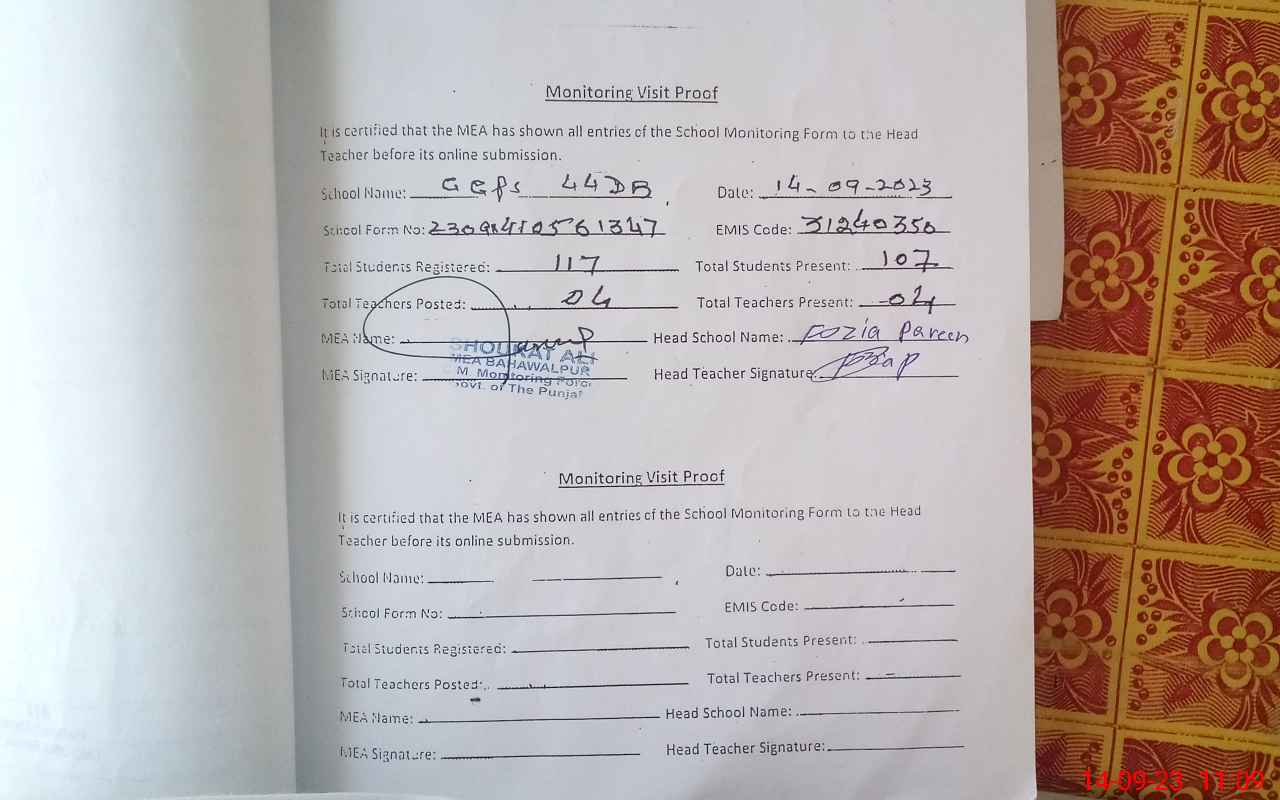 Monitoring Visit Proof
It is certified that the MEA has shown all entries of the School Monitoring Form to the Head
Teacher before its online submission.
School Name: GGPS 44DB Date: 14-09-2023
School Form No: EMIS Code: 31240350
Total Students Registered: 117 Total Students Present: 107
Total Teachers Posted: 04 Total Teachers Present: 04
MEA Name: Head School Name: Fozia Parveen
SHOUKAT ALI
MEA BAHAWALPUR
MEA Signature: Head Teacher Signature:
M. Monitoring Force
Govt. of The Punjab
Monitoring Visit Proof
It is certified that the MEA has shown all entries of the School Monitoring Form to the Head
Teacher before its online submission.
School Name: Date:
School Form No: EMIS Code:
Total Students Registered: Total Students Present:
Total Teachers Posted: Total Teachers Present:
MEA Name: Head School Name:
MEA Signature: Head Teacher Signature:
14-09-23 11:09